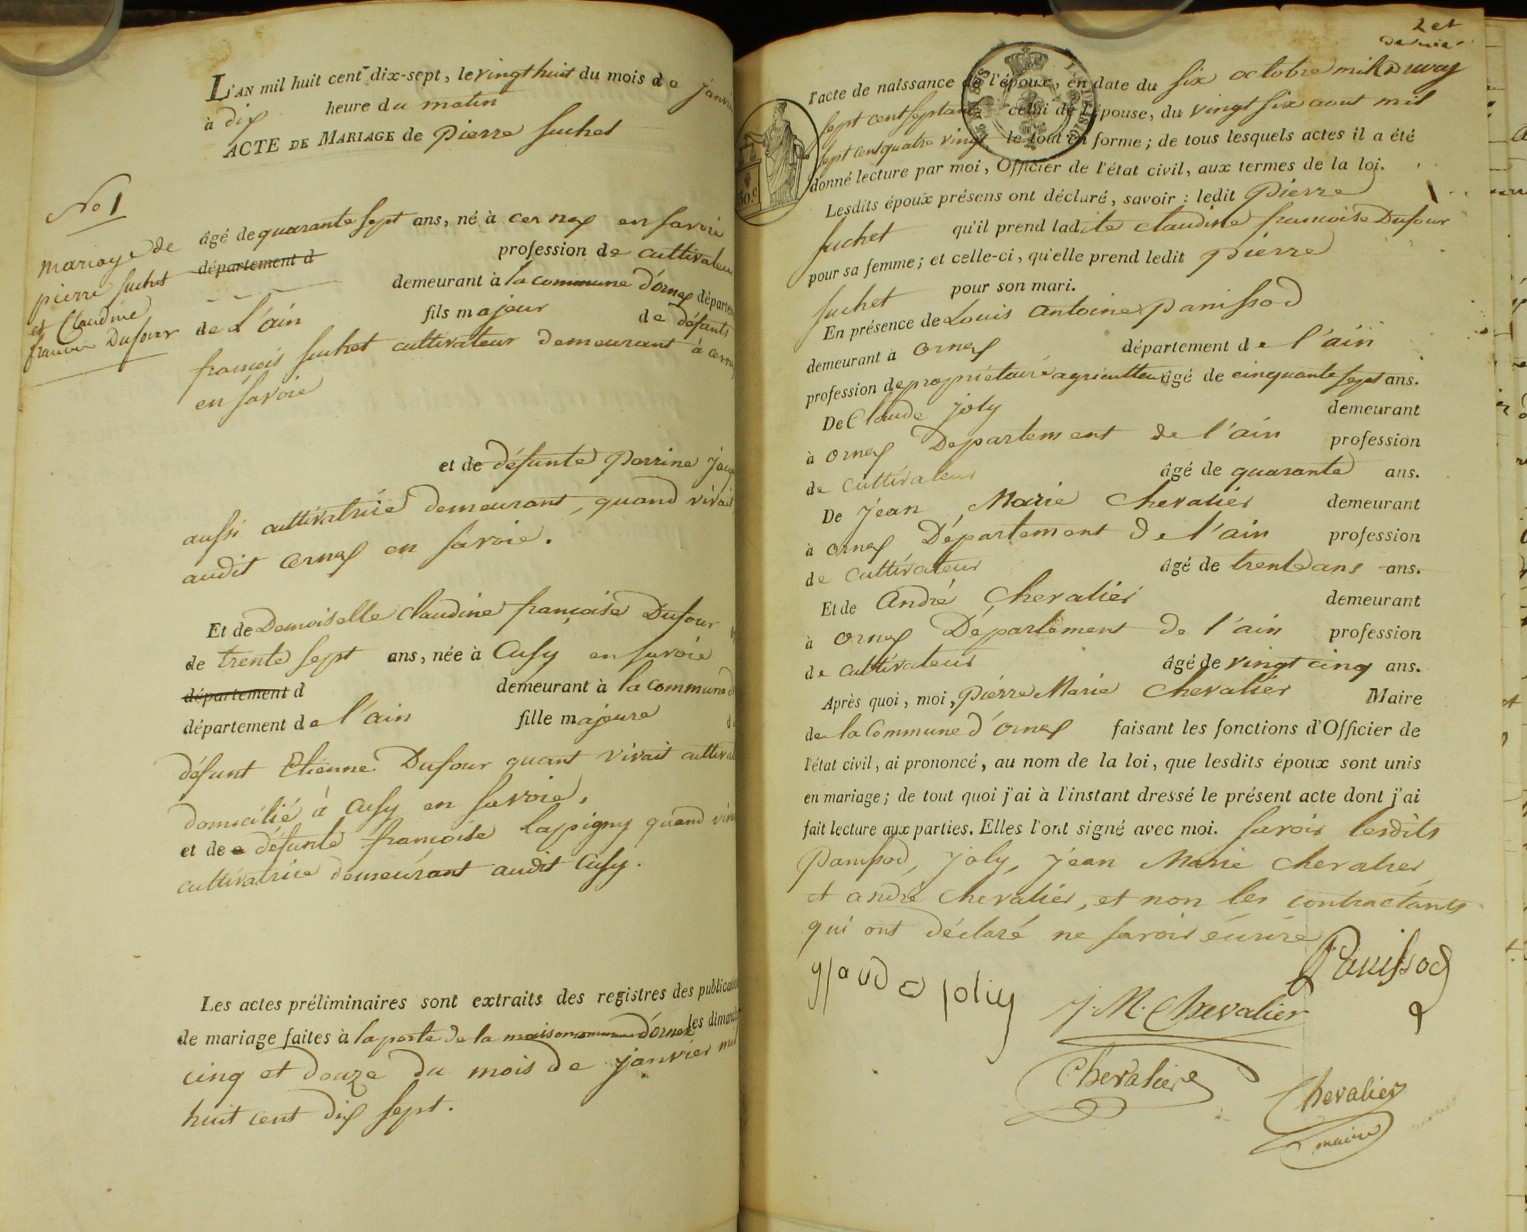 L'AN mil huit cent dix-sept, le vingt huit du mois de janvier
à dix heure du matin
ACTE DE MARIAGE de pierre Suchet
No 1
mariage de
pierre Suchet
et Claudine
françoise Dufour
âgé de quarante sept ans, né à cernex en Savoie
département d profession de cultivateur
demeurant à la commune d'ornex département
de L'ain fils majeur de défunts
françois Suchet cultivateur demeurant à cernex
en Savoie
et de défunte perrine
aussi cultivatrice demeurant, quand vivait
audit cernex en Savoie.
Et de Demoiselle Claudine françoise Dufour
de trente sept ans, née à Cusy en Savoie
département d demeurant à la commune d
département de l'ain fille majeure de
défunt Etienne Dufour quant vivait cultivateur
domicilié à Cusy en Savoie,
et de défunte françoise Lapigny quand vivait
cultivatrice demeurant audit Cusy.
Les actes préliminaires sont extraits des registres des publications
de mariage faites à la porte de la maison commune d'ornex les dimanches
cinq et douze du mois de janvier mil
huit cent dix sept.
2 et
dernier
l'acte de naissance de l'époux, en date du six octobre mil
sept cent septante celui de l'épouse, du vingt six aout mil
sept cent quatre vingt le tout en forme; de tous lesquels actes il a été
donné lecture par moi, Officier de l'état civil, aux termes de la loi.
Lesdits époux présens ont déclaré, savoir: ledit pierre
Suchet qu'il prend ladite claudine françoise Dufour
pour sa femme; et celle-ci, qu'elle prend ledit pierre
Suchet pour son mari.
En présence de Louis antoine panissod
demeurant à ornex département de l'ain
profession de propriétaire agriculteur âgé de cinquante sept ans.
De Claude joly demeurant
à ornex Département de l'ain profession
de cultivateur âgé de quarante ans.
De jean Marie Chevalier demeurant
à ornex Département de l'ain profession
de cultivateur âgé de trente ans ans.
Et de André Chevalier demeurant
à ornex Département de l'ain profession
de cultivateur âgé de vingt cinq ans.
Après quoi, moi, pierre Marie Chevalier Maire
de la Commune d'ornex faisant les fonctions d'Officier de
l'état civil, ai prononcé, au nom de la loi, que lesdits époux sont unis
en mariage; de tout quoi j'ai à l'instant dressé le présent acte dont j'ai
fait lecture aux parties. Elles l'ont signé avec moi. Savoir lesdits
panissod, joly, jean Marie chevalier
et andré chevalier, et non les contractants
qui ont déclaré ne savoir écrire
Panissod
joliy
J. M. Chevalier
Chevalier
Chevalier
maire